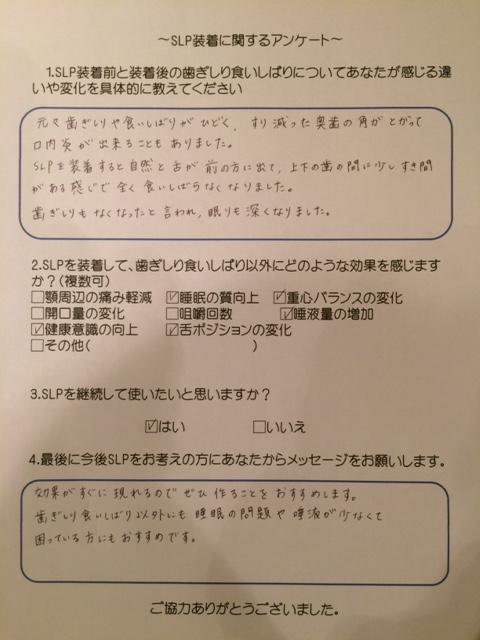 ～SLP装着に関するアンケート～
1.SLP装着前と装着後の歯ぎしり食いしばりについてあなたが感じる違
いや変化を具体的に教えてください
元々歯ぎしりや食いしばりがひどく、すり減った奥歯の角がとがって
口内炎が出来ることもありました。
SLPを装着すると自然と舌が前の方に出て、上下の歯の間に少しすき間
がある感じで全く食いしばらなくなりました。
歯ぎしりもなくなったと言われ、眠りも深くなりました。
2.SLPを装着して、歯ぎしり食いしばり以外にどのような効果を感じます
か？(複数可)
□顎周辺の痛み軽減 ☑睡眠の質向上 ☑重心バランスの変化
□開口量の変化 □咀嚼回数 ☑唾液量の増加
☑健康意識の向上 ☑舌ポジションの変化
□その他( )
3.SLPを継続して使いたいと思いますか？
☑はい □いいえ
4.最後に今後SLPをお考えの方にあなたからメッセージをお願いします。
効果がすぐに現れるのでぜひ作ることをおすすめします。
歯ぎしり食いしばり以外にも睡眠の問題や唾液が少なくて
困っている方にもおすすめです。
ご協力ありがとうございました。